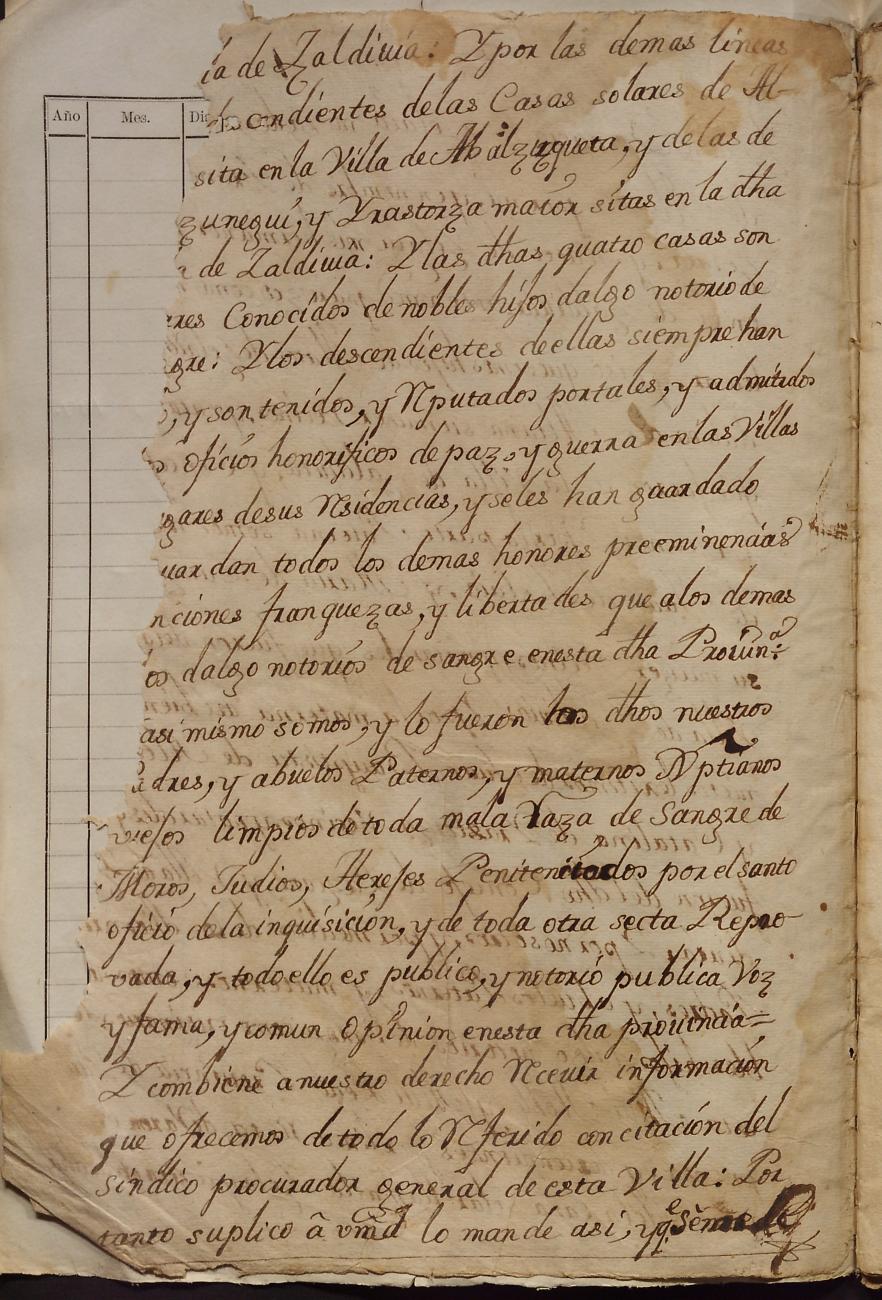 Año Mes. Dia
ia de Zaldiuia: Y por las demas lineas
descendientes delas Casas solares de Al-
sita en la Villa de Abalzuzqueta, y delas de
zunegui, y Yrastorza maior sitas en la dha
de Zaldiuia: Y las dhas quatro casas son
ares Conocidos de nobles hijos dalgo notorio de
gre: Y los descendientes de ellas siempre han
, y son tenidos, y Rputados por tales, y admitidos
s oficios honorificos de paz, y guerra en las Villas
gares de sus Rsidencias, y seles han guardado
uardan todos los demas honores preeminencias
nciones franquezas, y libertades que alos demas
os dalgo notorios de sangre enesta dha Prouinª:
asi mismo somos, y lo fueron los dhos nuestros
adres, y abuelos Paternos, y maternos Xptianos
viejos limpios de toda mala Raza de Sangre de
Moros, Judios, Herejes Penitenciados por el santo
oficio dela inquisición, y de toda otra secta Repro-
vada, y todo ello es publico, y notorio publica Voz
y fama, y comun Opinion enesta dha prouincia=
Y combiene a nuestro derecho Rceuir información
que ofrecemos de todo lo Rferido con citación del
sindico procurador general de esta Villa: Por
tanto suplico â vmd lo mande asi, y qe se me de